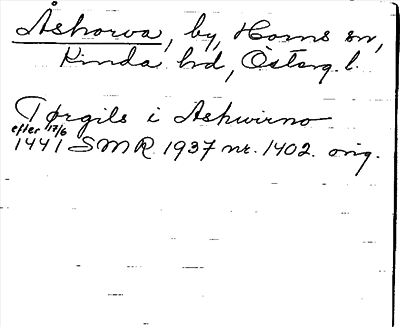 Åshorva, by, Horns sn,
Kinda hd, Österg. l.
Torgils i Ashwirno
efter 17/6
1441 SMR 1937 nr. 1402. orig.